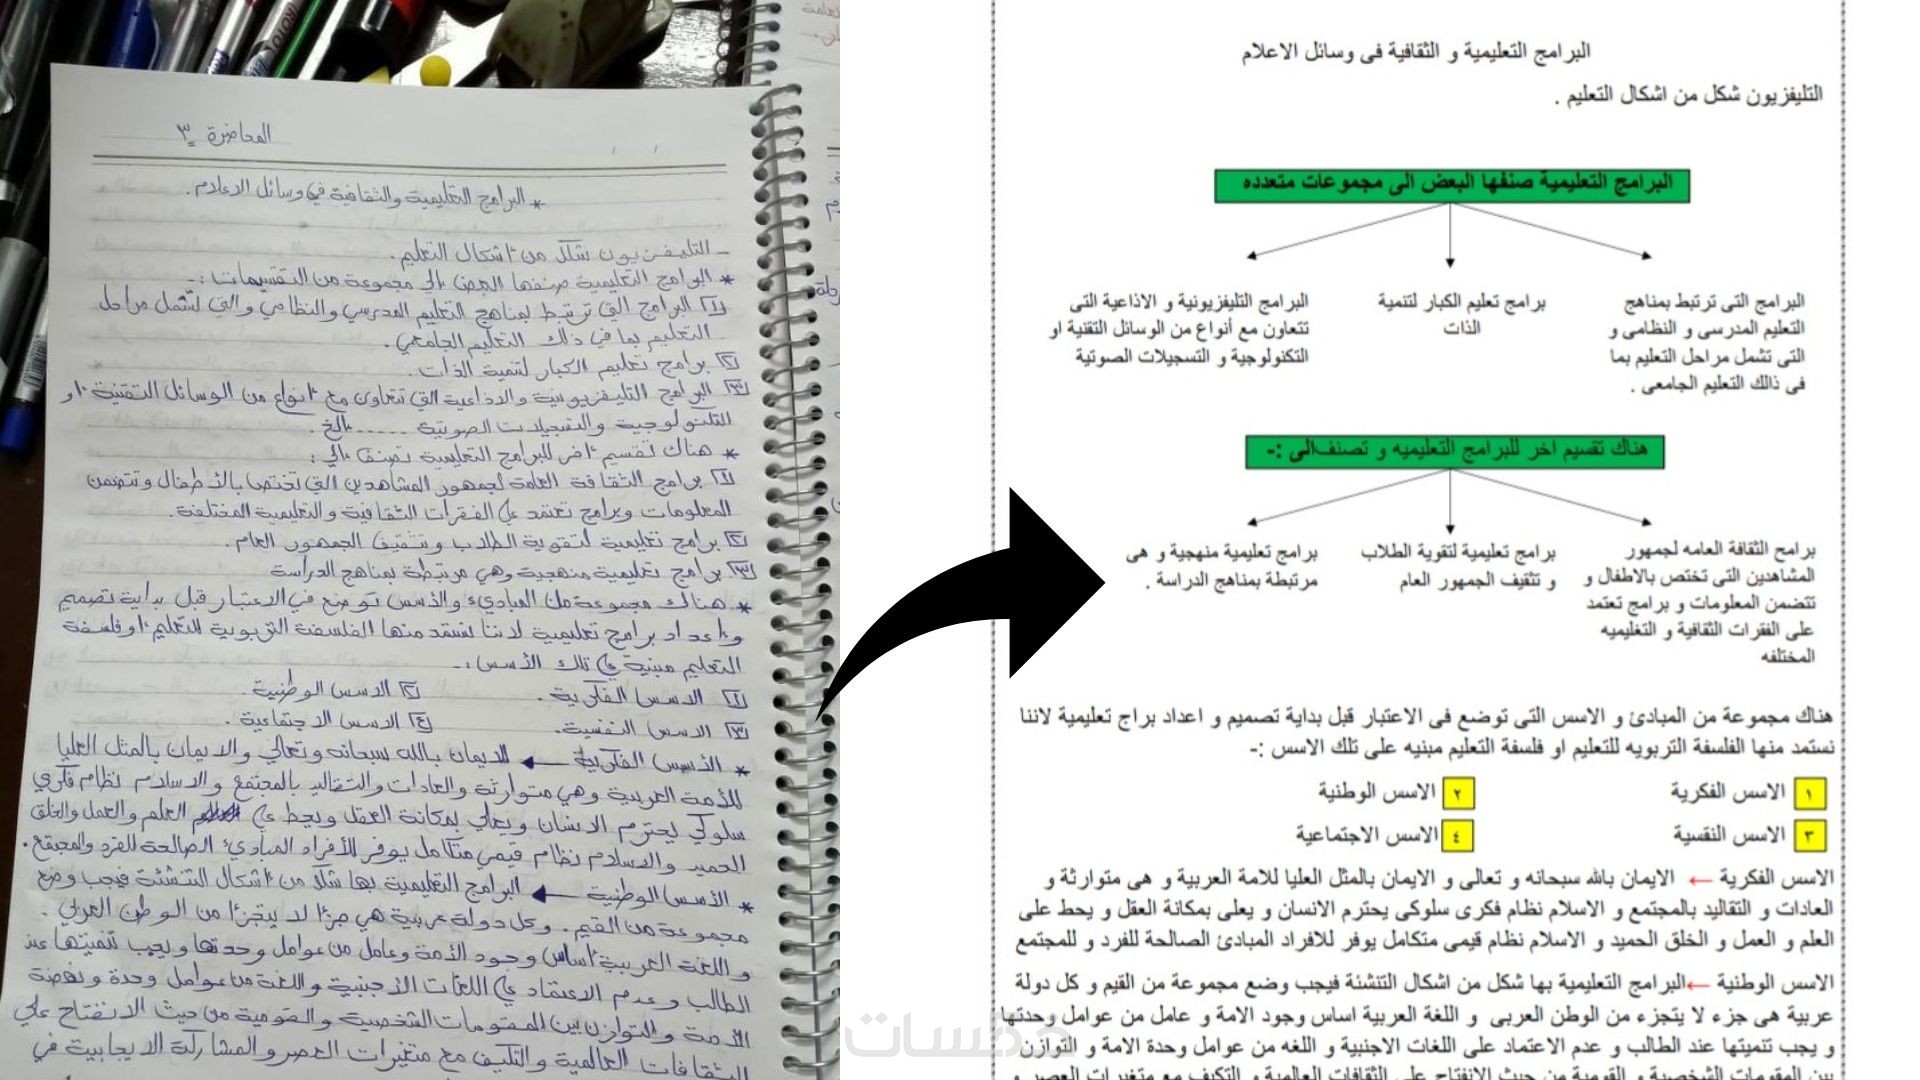 المحاضرة ٣
* البرامج التعليمية والثقافية في وسائل الاعلام.
- التليفزيون شكل من أشكال التعليم.
* البرامج التعليمية صنفها البعض إلي مجموعة من التقسيمات :-
١ البرامج التي ترتبط بمناهج التعليم المدرسي والنظامي والتي تشمل مراحل
التعليم بما في ذلك التعليم الجامعي.
٢ برامج تعليم الكبار لتنمية الذات.
٣ البرامج التليفزيونية والاذاعية التي تتعاون مع أنواع من الوسائل التقنية أو
التكنولوجية والتسجيلات الصوتية ..... إلخ.
* هناك تقسيم أخر للبرامج التعليمية تصنف إلي :
١ برامج الثقافة العامة لجمهور المشاهدين التي تختص بالأطفال وتتضمن
المعلومات وبرامج تعتمد علي الفقرات الثقافية والتعليمية المختلفة.
٢ برامج تعليمية لتقوية الطلاب وتثقيف الجمهور العام.
٣ برامج تعليمية منهجية وهي مرتبطة بمناهج الدراسة
* هناك مجموعة من المباديء والأسس توضع في الاعتبار قبل بداية تصميم
وإعداد برامج تعليمية لاننا نستمد منها الفلسفة التربوية للتعليم أو فلسفة
التعليم مبنية علي تلك الأسس :-
١ الاسس الفكرية. ٢ الاسس الوطنية.
٣ الاسس النفسية. ٤ الاسس الاجتماعية.
* الأسس الفكرية ← الايمان بالله سبحانه وتعالي والايمان بالمثل العليا
للأمة العربية وهي متوارثة والعادات والتقاليد بالمجتمع والاسلام نظام فكري
سلوكي يحترم الانسان ويعلي بمكانة العقل ويحط علي العلم والعمل والخلق
الحميد والاسلام نظام قيمي متكامل يوفر للأفراد المباديء الصالحة للفرد والمجتمع.
* الأسس الوطنية ← البرامج التعليمية بها شكل من أشكال التنشئة فيجب وضع
مجموعة من القيم. وكل دولة عربية هي جزأ لا يتجزأ من الوطن العربي.
واللغة العربية أساس وجود الأمة وعامل من عوامل وحدتها ويجب تنميتها عند
الطالب وعدم الاعتماد علي اللغات الأجنبية واللغة من عوامل وحدة ونهضة
الأمة والتوازن بين المقومات الشخصية والقومية من حيث الانفتاح علي
الثقافات العالمية والتكيف مع متغيرات العصر والمشاركة الايجابية في
البرامج التعليمية و الثقافية فى وسائل الاعلام
التليفزيون شكل من اشكال التعليم .
البرامج التعليمية صنفها البعض الى مجموعات متعدده
البرامج التى ترتبط بمناهج
التعليم المدرسى و النظامى و
التى تشمل مراحل التعليم بما
فى ذالك التعليم الجامعى .
برامج تعليم الكبار لتنمية
الذات
البرامج التليفزيونية و الاذاعية التى
تتعاون مع أنواع من الوسائل التقنية او
التكنولوجية و التسجيلات الصوتية
هناك تقسيم اخر للبرامج التعليميه و تصنف الى :-
برامح الثقافة العامه لجمهور
المشاهدين التى تختص بالاطفال و
تتضمن المعلومات و برامج تعتمد
على الفقرات الثقافية و التغليميه
المختلفه
برامج تعليمية لتقوية الطلاب
و تثقيف الجمهور العام
برامج تعليمية منهجية و هى
مرتبطة بمناهج الدراسة .
هناك مجموعة من المبادئ و الاسس التى توضع فى الاعتبار قبل بداية تصميم و اعداد براج تعليمية لاننا
نستمد منها الفلسفة التربويه للتعليم او فلسفة التعليم مبنيه على تلك الاسس :-
١ الاسس الفكرية ٢ الاسس الوطنية
٣ الاسس النقسية ٤ الاسس الاجتماعية
الاسس الفكرية ← الايمان بالله سبحانه و تعالى و الايمان بالمثل العليا للامة العربية و هى متوارثة و
العادات و التقاليد بالمجتمع و الاسلام نظام فكرى سلوكى يحترم الانسان و يعلى بمكانة العقل و يحط على
العلم و العمل و الخلق الحميد و الاسلام نظام قيمى متكامل يوفر للافراد المبادئ الصالحة للفرد و للمجتمع
الاسس الوطنية ←البرامج التعليمية بها شكل من اشكال التنشئة فيجب وضع مجموعة من القيم و كل دولة
عربية هى جزء لا يتجزء من الوطن العربى و اللغة العربية اساس وجود الامة و عامل من عوامل وحدتها
و يجب تنميتها عند الطالب و عدم الاعتماد على اللغات الاجنبية و اللغه من عوامل وحدة الامة و التوازن
بين المقومات الشخصية و القومية من حيث الانفتاح على الثقافات العالمية و التكيف مع متغيرات العصر و
خمسات